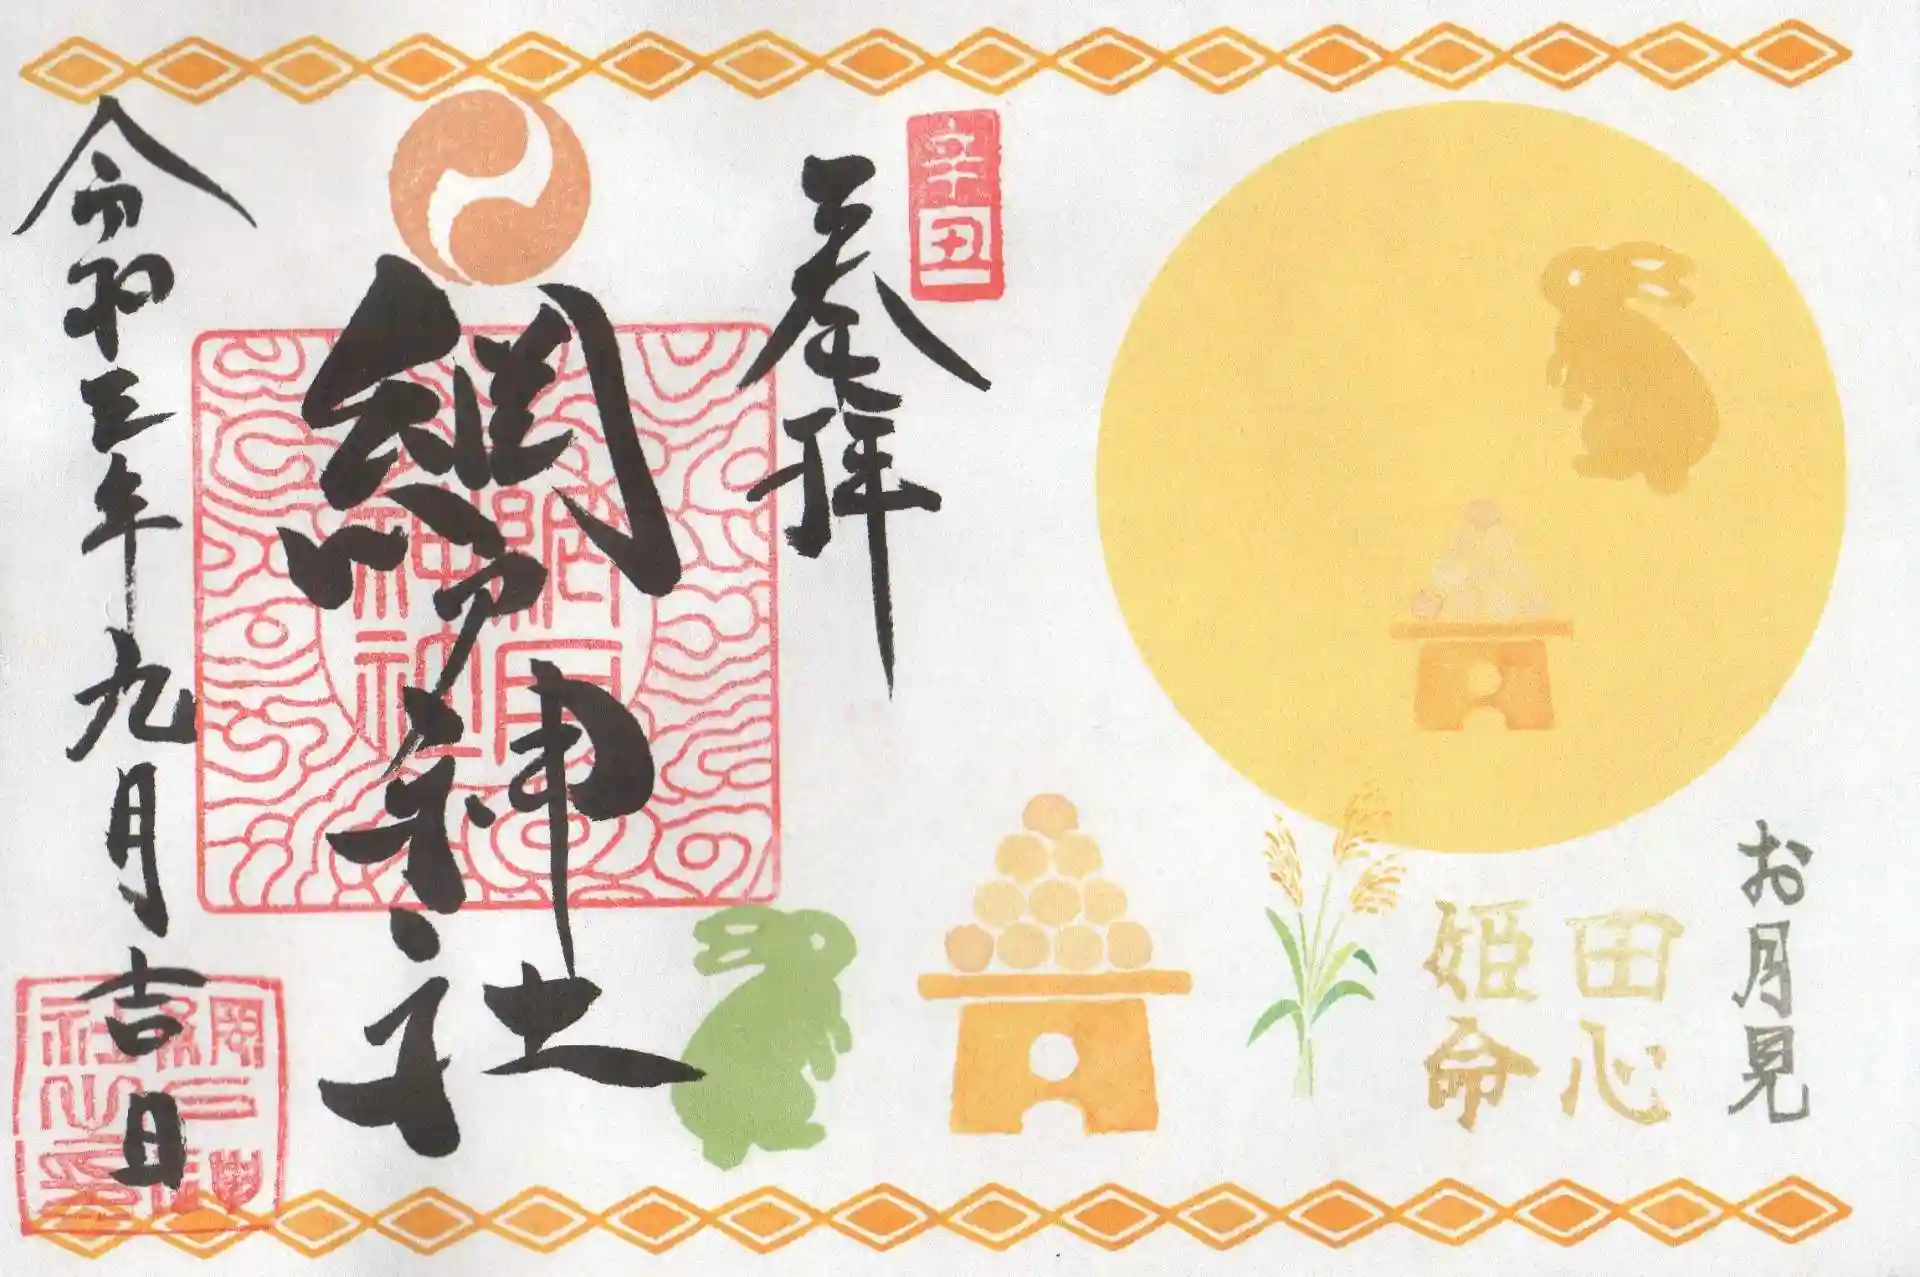 お月見
田心
姫命
辛丑
奉拝
網戸神社
網戸
神社
令和三年九月吉日
網戸神
社之印